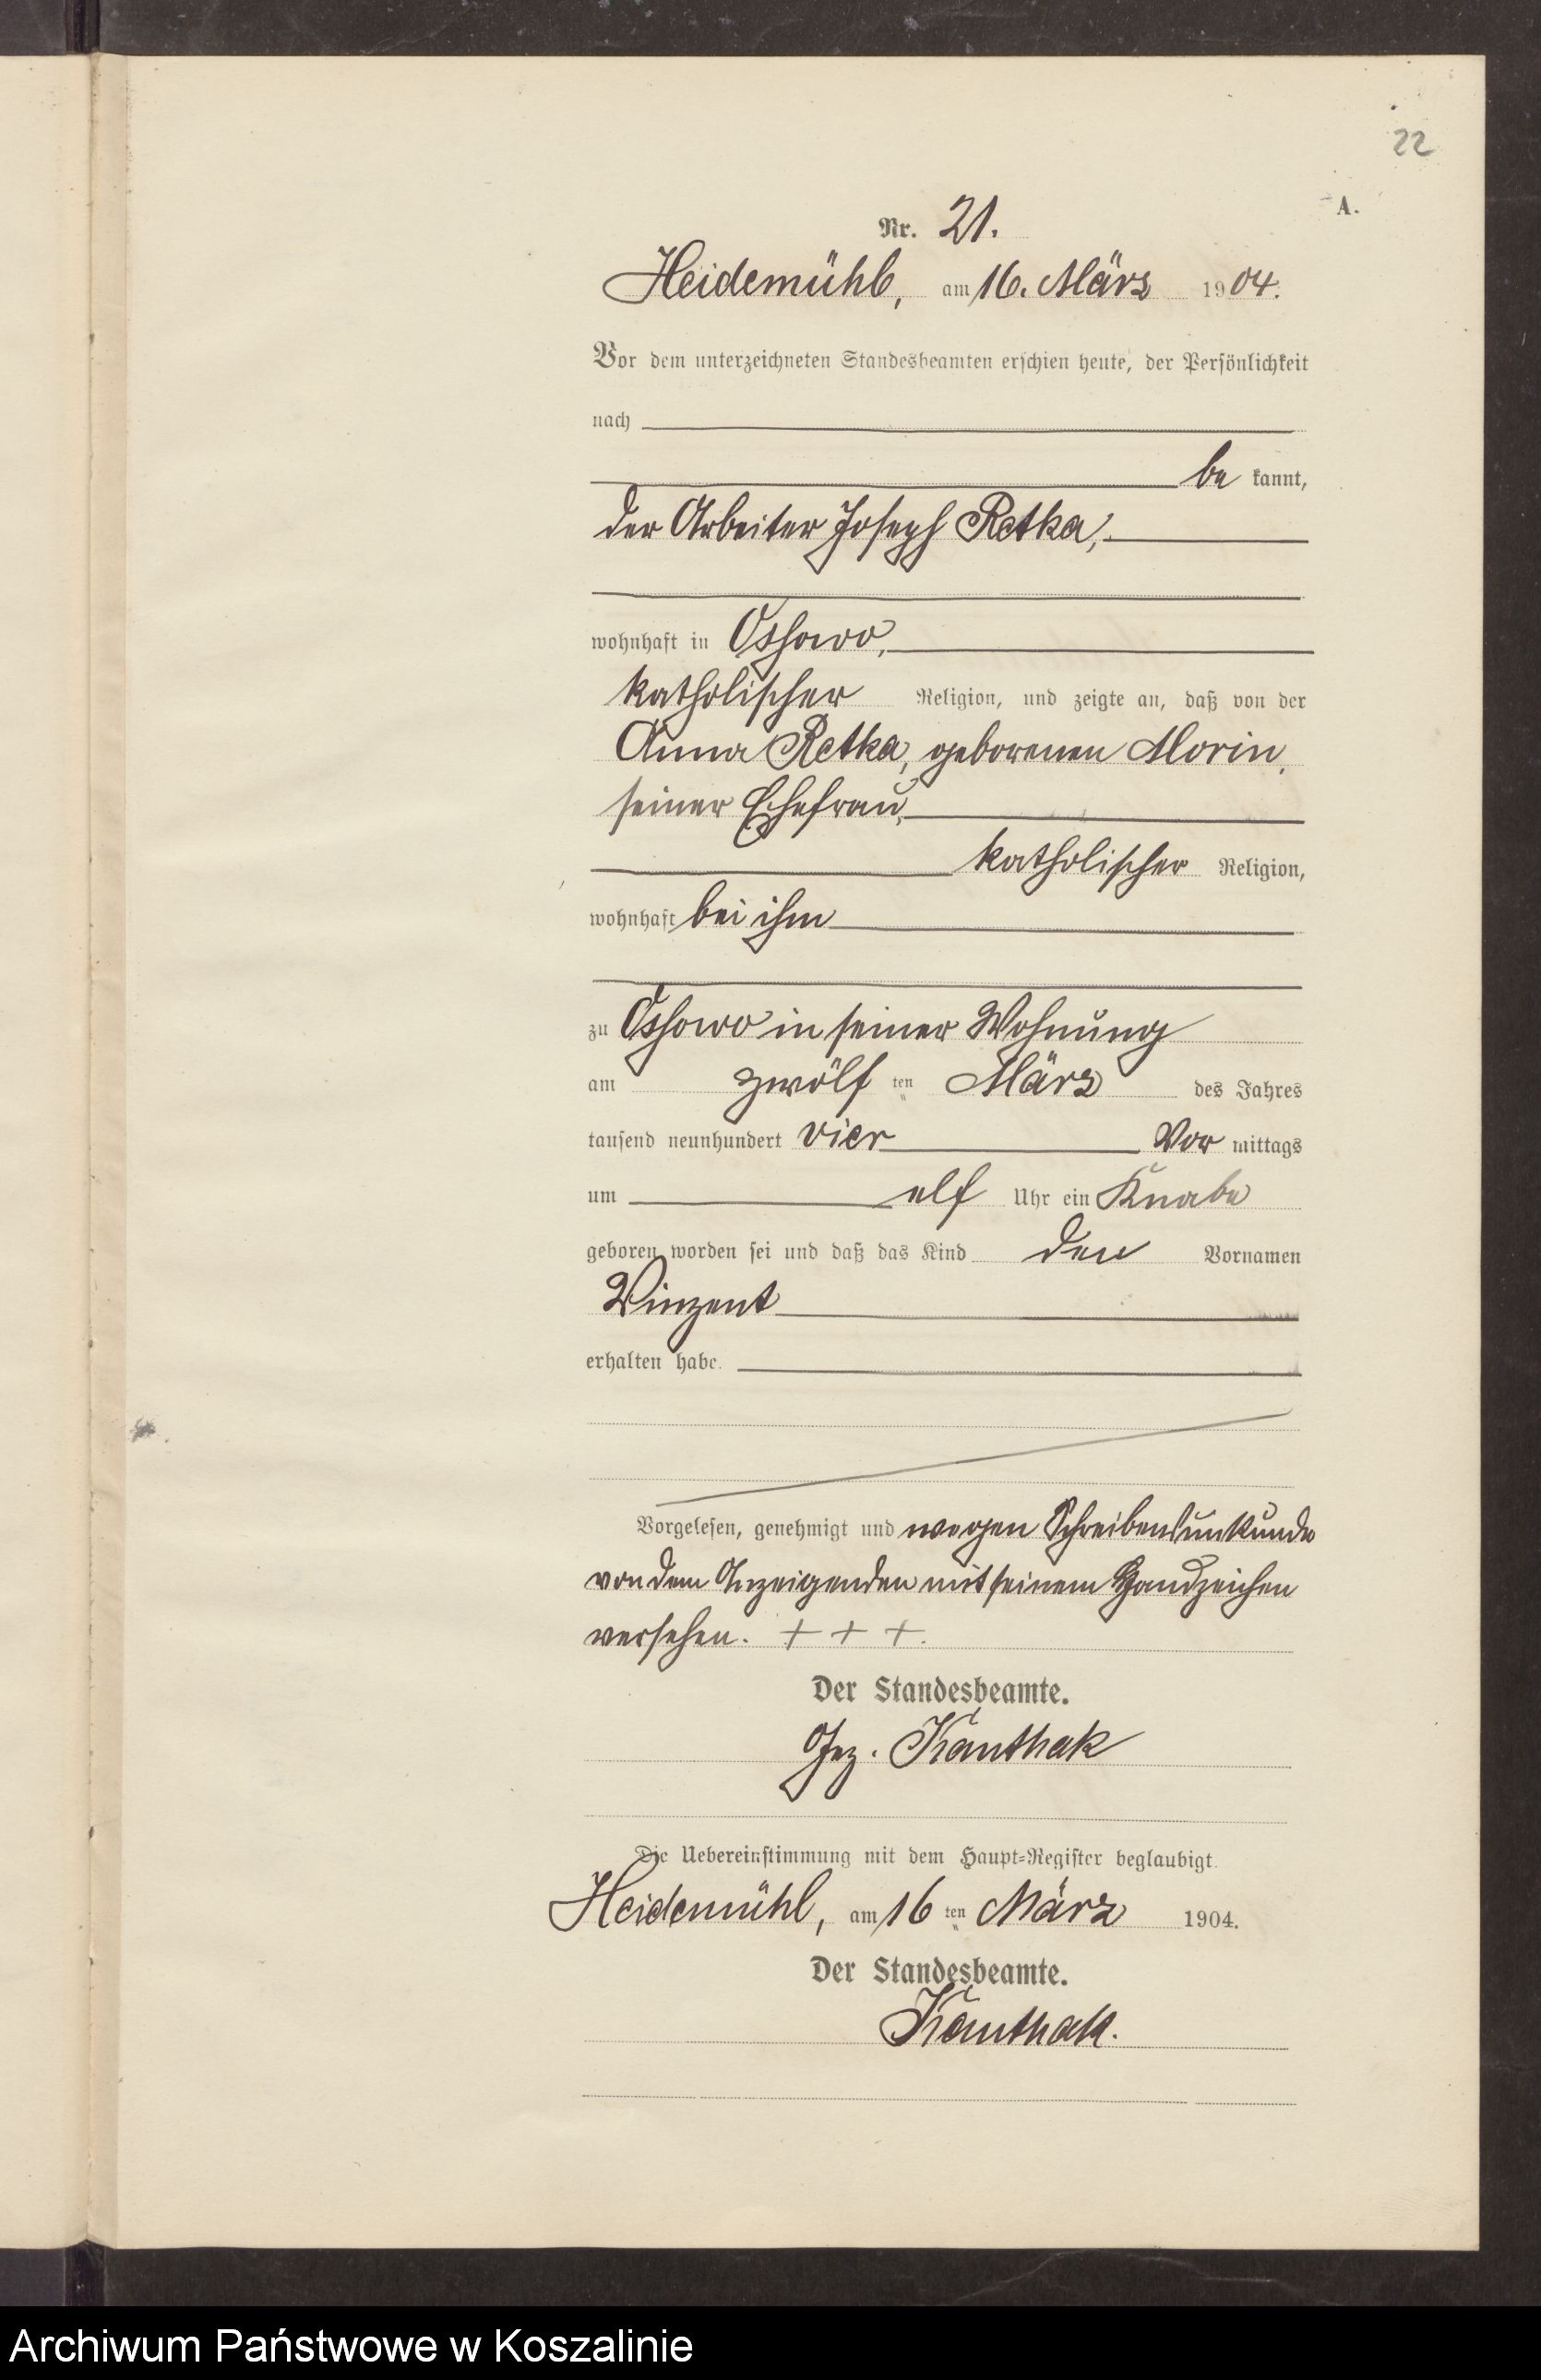 22
A.
Nr. 21.
Heidemühl, am 16. März 1904.
Vor dem unterzeichneten Standesbeamten erschien heute, der Persönlichkeit
nach
be kannt,
der Arbeiter Joseph Retka,
wohnhaft in Ossowo,
katholischer Religion, und zeigte an, daß von der
Anna Retka, geborenen Morin,
seiner Ehefrau,
katholischer Religion,
wohnhaft bei ihm
zu Ossowo in seiner Wohnung
am zwölf ten März des Jahres
tausend neunhundert vier Vor mittags
um elf Uhr ein Knabe
geboren worden sei und daß das Kind den Vornamen
Vinzent
erhalten habe.
Vorgelesen, genehmigt und wegen Schreibensunkunde
von dem Anzeigenden mit seinem Handzeichen
versehen. + + +.
Der Standesbeamte.
Gez. Kanthak
Die Uebereinstimmung mit dem Haupt-Register beglaubigt.
Heidemühl, am 16 ten März 1904.
Der Standesbeamte.
Kanthak.
Archiwum Państwowe w Koszalinie